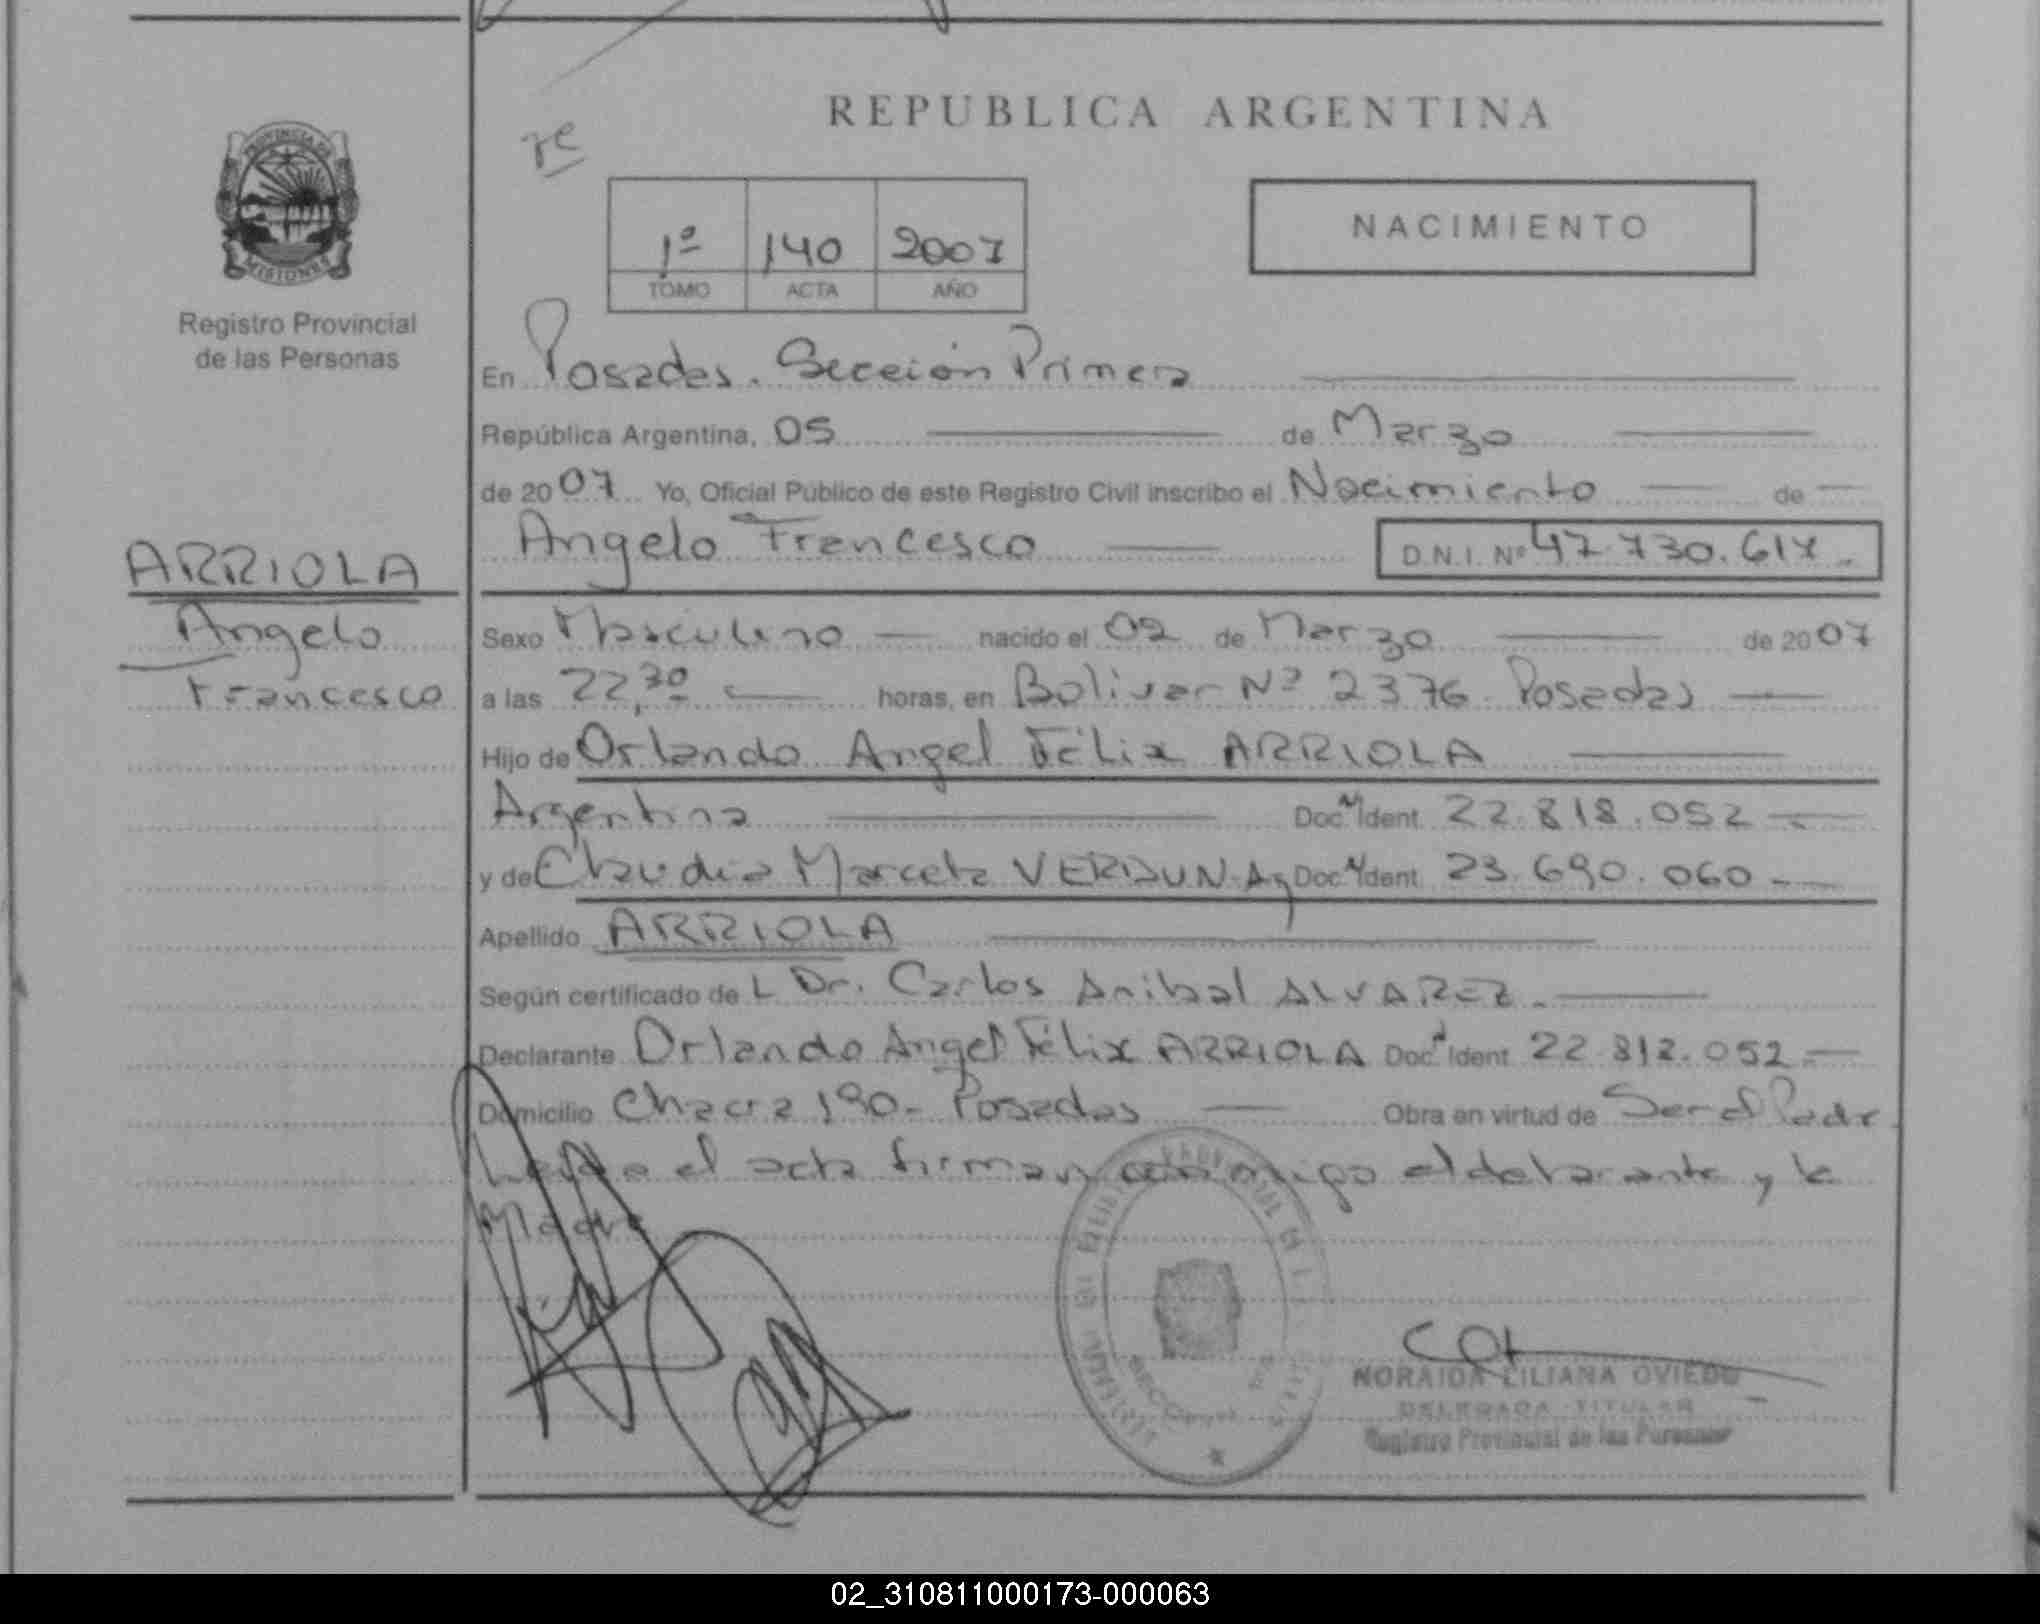 REPUBLICA ARGENTINA
PROVINCIA DE
MISIONES
Registro Provincial
de las Personas
1º 140 2007
TOMO ACTA AÑO
NACIMIENTO
En Posadas. Sección Primera
República Argentina, 05 de Marzo
de 2007 Yo, Oficial Público de este Registro Civil inscribo el Nacimiento de
Angelo Francesco D.N.I. Nº 47.730.617.-
ARRIOLA
Angelo
Francesco
Sexo Masculino nacido el 02 de Marzo de 2007
a las 22,30 horas, en Bolivar Nº 2376 Posadas
Hijo de Orlando Angel Félix ARRIOLA
Argentina Doc. Ident. 22.818.052
y de Claudia Marcela VERDUN Doc. Ident. 23.690.060
Apellido ARRIOLA
Según certificado de L Dr. Carlos Anibal ALVAREZ.
Declarante Orlando Angel Félix ARRIOLA Doc. Ident. 22.812.052
Domicilio Chacra 190- Posadas Obra en virtud de Ser el Padre
el acta firman conmigo el declarante y la
Madre
NORAIDA LILIANA OVIEDO
DELEGADA TITULAR
Registro Provincial de las Personas
02_310811000173-000063